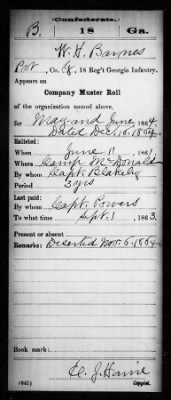 Confederate.
B. 18 Ga.
W. H. Barnes
Pvt, Co. , 18 Reg't Georgia Infantry.
Appears on
Company Muster Roll
of the organization named above,
for May and June, 1864.
Dated Dec. 10. 1864
Enlisted:
When June 11, 1861.
Where Camp McDonald
By whom Capt. Blakely
Period 3 yrs
Last paid:
By whom Capt. Powers
To what time Sept. 1, 1863.
Present or absent
Remarks: Deserted Nov. 6. 1864
Book mark:
(642) Copyist.